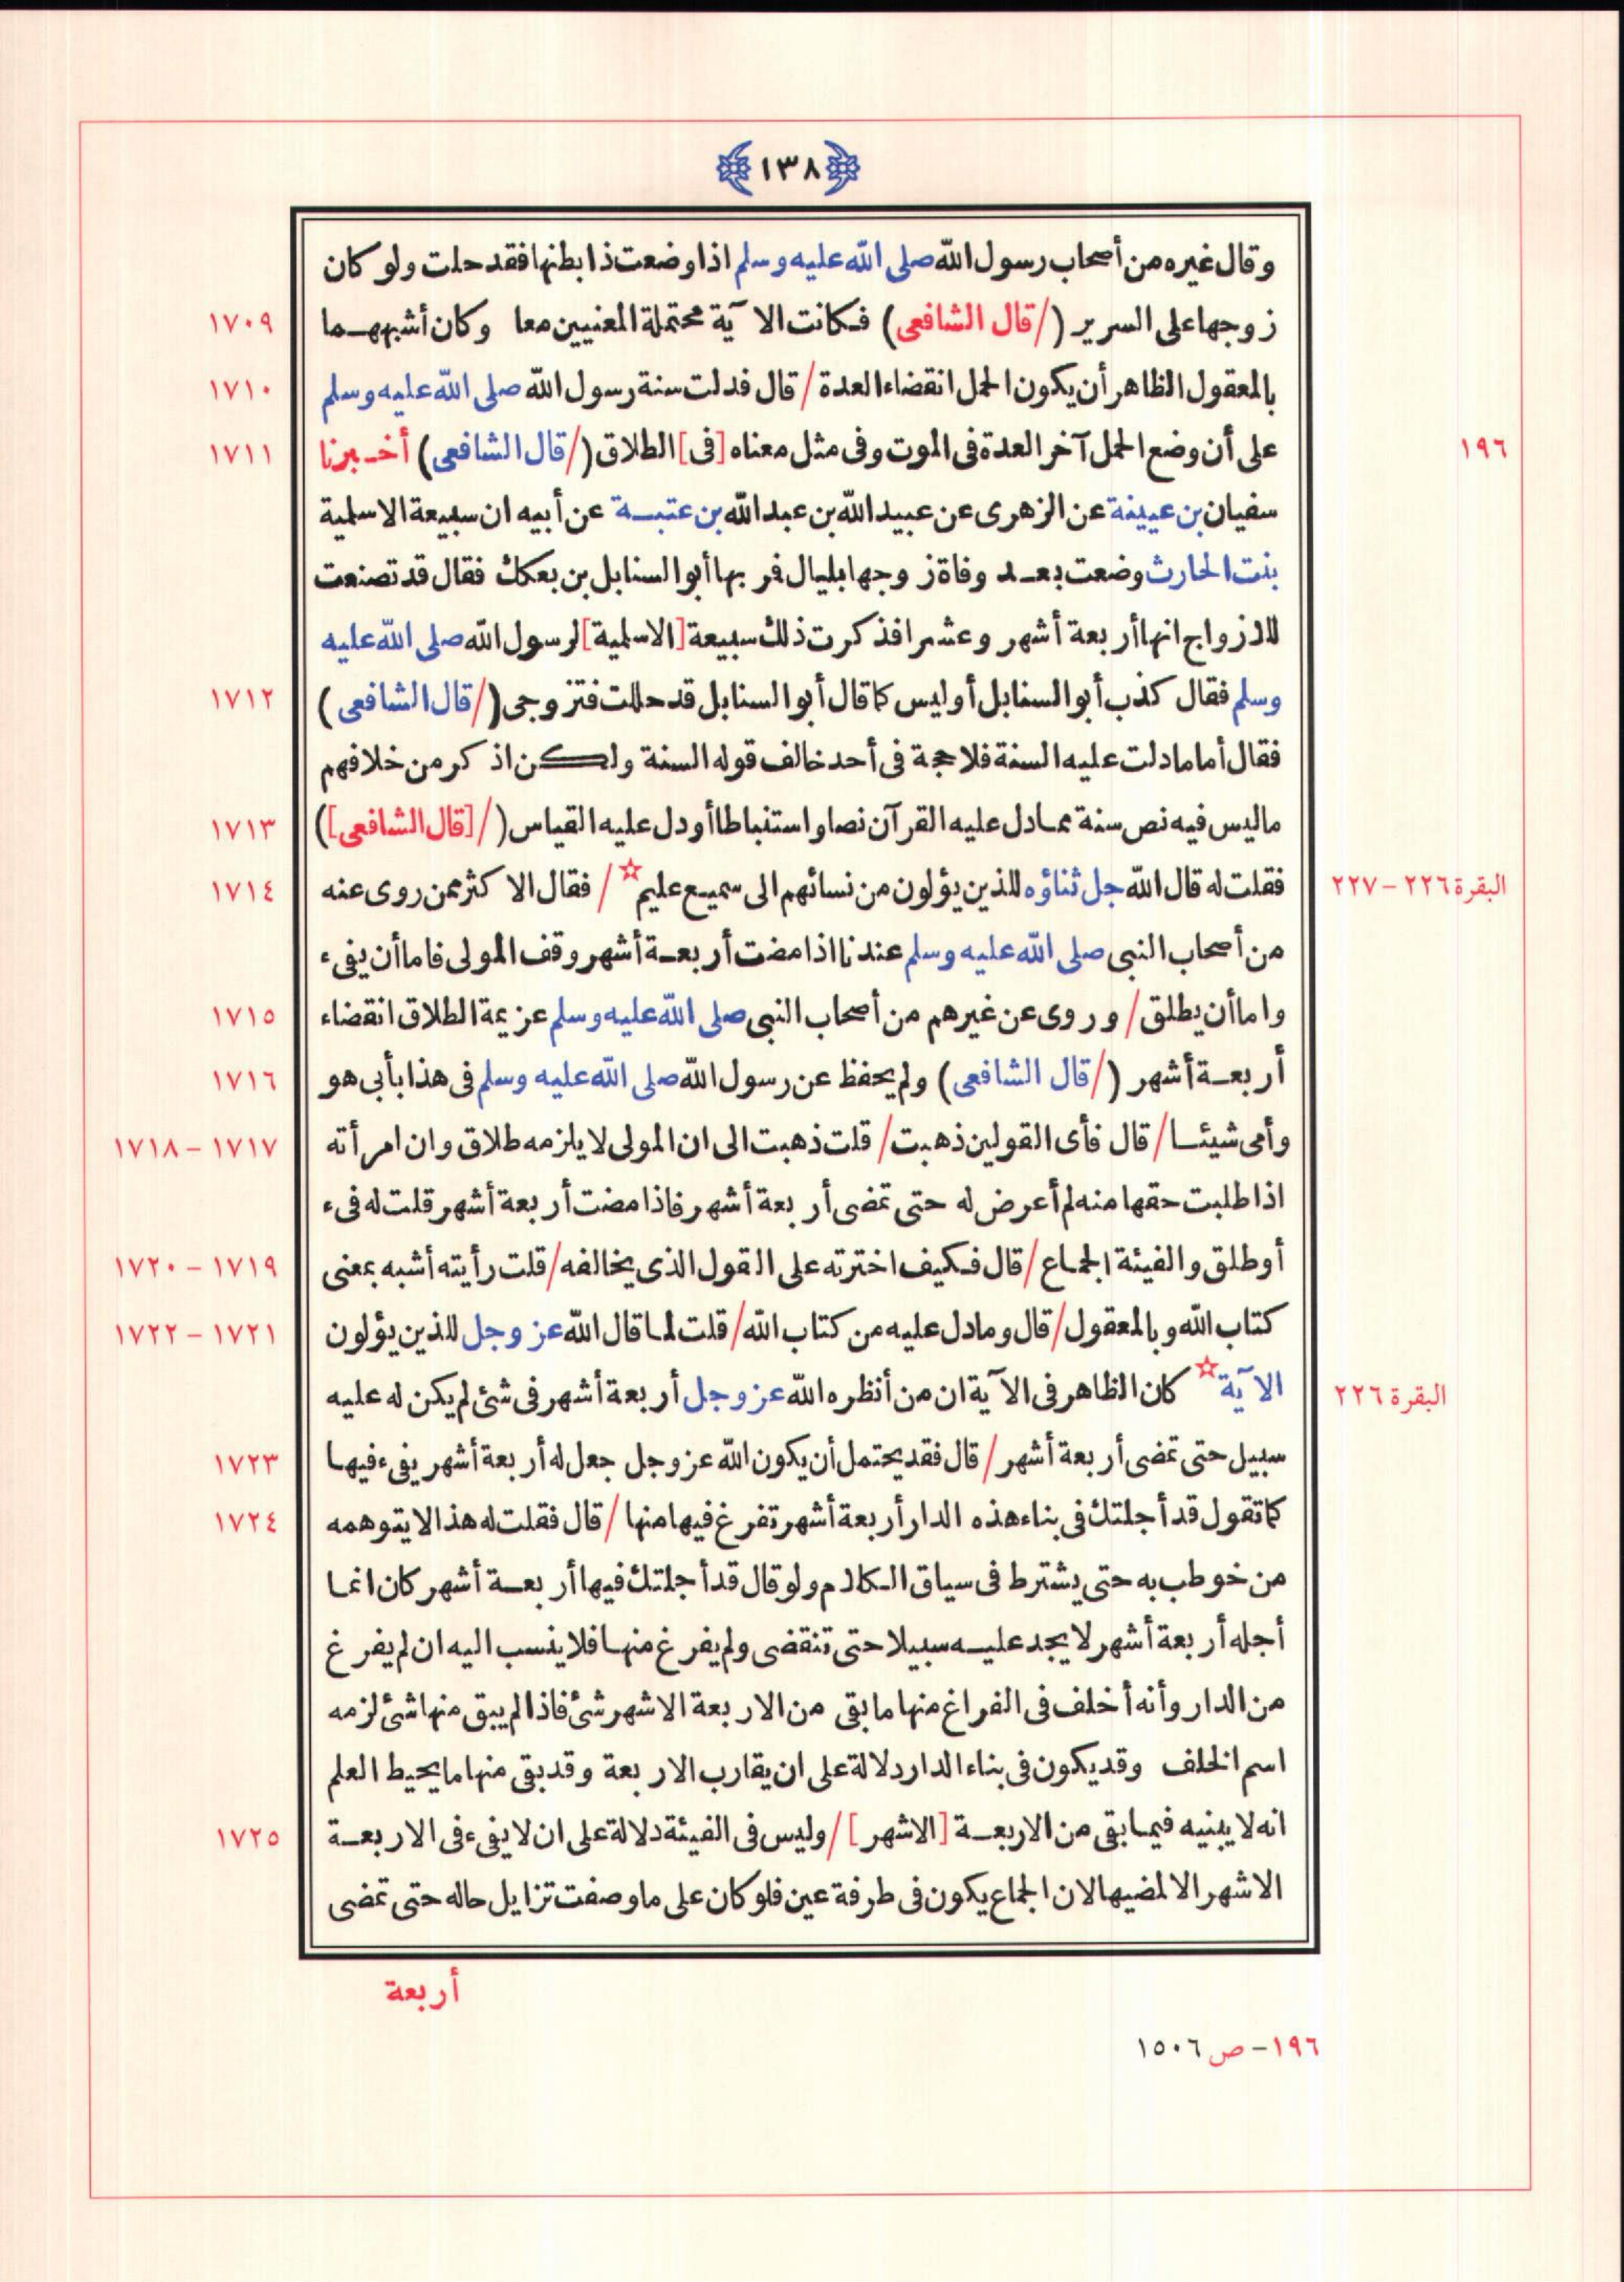 ١٣٨
وقال غيره من أصحاب رسول الله صلى الله عليه وسلم اذا وضعت ذا بطنها فقد حلت ولو كان
زوجها على السرير (/قال الشافعى) فكانت الآية محتملة المعنيين معا وكان أشبههما ١٧٠٩
بالمعقول الظاهر أن يكون الحمل انقضاء العدة / قال فدلت سنة رسول الله صلى الله عليه وسلم ١٧١٠
١٩٦ على أن وضع الحمل آخر العدة فى الموت وفى مثل معناه [فى] الطلاق (/قال الشافعى) أخبرنا ١٧١١
سفيان بن عيينة عن الزهرى عن عبيد الله بن عبد الله بن عتبة عن أبيه ان سبيعة الاسلمية
بنت الحارث وضعت بعد وفاة زوجها بليال فمر بها أبو السنابل بن بعكك فقال قد تصنعت
للازواج انها أربعة أشهر وعشرا فذكرت ذلك سبيعة [الاسلمية] لرسول الله صلى الله عليه
وسلم فقال كذب أبو السنابل أو ليس كما قال أبو السنابل قد حللت فتزوجى (/قال الشافعى) ١٧١٢
فقال أما ما دلت عليه السنة فلا حجة فى أحد خالف قوله السنة ولكن اذكر من خلافهم
ما ليس فيه نص سنة مما دل عليه القرآن نصا واستنباطا أو دل عليه القياس (/[قال الشافعى]) ١٧١٣
البقرة ٢٢٦ - ٢٢٧ فقلت له قال الله جل ثناؤه للذين يؤلون من نسائهم الى سميع عليم☆ / فقال الاكثر ممن روى عنه ١٧١٤
من أصحاب النبى صلى الله عليه وسلم عندنا اذا مضت أربعة أشهر وقف المولى فاما أن يفىء
واما أن يطلق / وروى عن غيرهم من أصحاب النبى صلى الله عليه وسلم عزيمة الطلاق انقضاء ١٧١٥
أربعة أشهر (/قال الشافعى) ولم يحفظ عن رسول الله صلى الله عليه وسلم فى هذا بأبى هو ١٧١٦
وأمى شيئا / قال فأى القولين ذهبت / قلت ذهبت الى ان المولى لا يلزمه طلاق وان امرأته ١٧١٧ - ١٧١٨
اذا طلبت حقها منه لم أعرض له حتى تمضى أربعة أشهر فاذا مضت أربعة أشهر قلت له فىء
أو طلق والفيئة الجماع / قال فكيف اخترته على القول الذى يخالفه / قلت رأيته أشبه بمعنى ١٧١٩ - ١٧٢٠
كتاب الله وبالمعقول / قال وما دل عليه من كتاب الله / قلت لما قال الله عز وجل للذين يؤلون ١٧٢١ - ١٧٢٢
البقرة ٢٢٦ الآية☆ كان الظاهر فى الآية ان من أنظره الله عز وجل أربعة أشهر فى شئ لم يكن له عليه
سبيل حتى تمضى أربعة أشهر / قال فقد يحتمل أن يكون الله عز وجل جعل له أربعة أشهر يفىء فيها ١٧٢٣
كما تقول قد أجلتك فى بناء هذه الدار أربعة أشهر تفرغ فيها منها / قال فقلت له هذا لا يتوهمه ١٧٢٤
من خوطب به حتى يشترط فى سياق الكلام ولو قال قد أجلتك فيها أربعة أشهر كان انما
أجله أربعة أشهر لا يجد عليه سبيلا حتى تنقضى ولم يفرغ منها فلا ينسب اليه ان لم يفرغ
من الدار وأنه أخلف فى الفراغ منها ما بقى من الاربعة الاشهر شئ فاذا لم يبق منها شئ لزمه
اسم الخلف وقد يكون فى بناء الدار دلالة على ان يقارب الاربعة وقد بقى منها ما يحيط العلم
انه لا يبنيه فيما بقى من الاربعة [الاشهر] / وليس فى الفيئة دلالة على ان لا يفىء فى الاربعة ١٧٢٥
الاشهر الا لمضيها لان الجماع يكون فى طرفة عين فلو كان على ما وصفت تزايل حاله حتى تمضى
أربعة
١٩٦ - ص ١٥٠٦